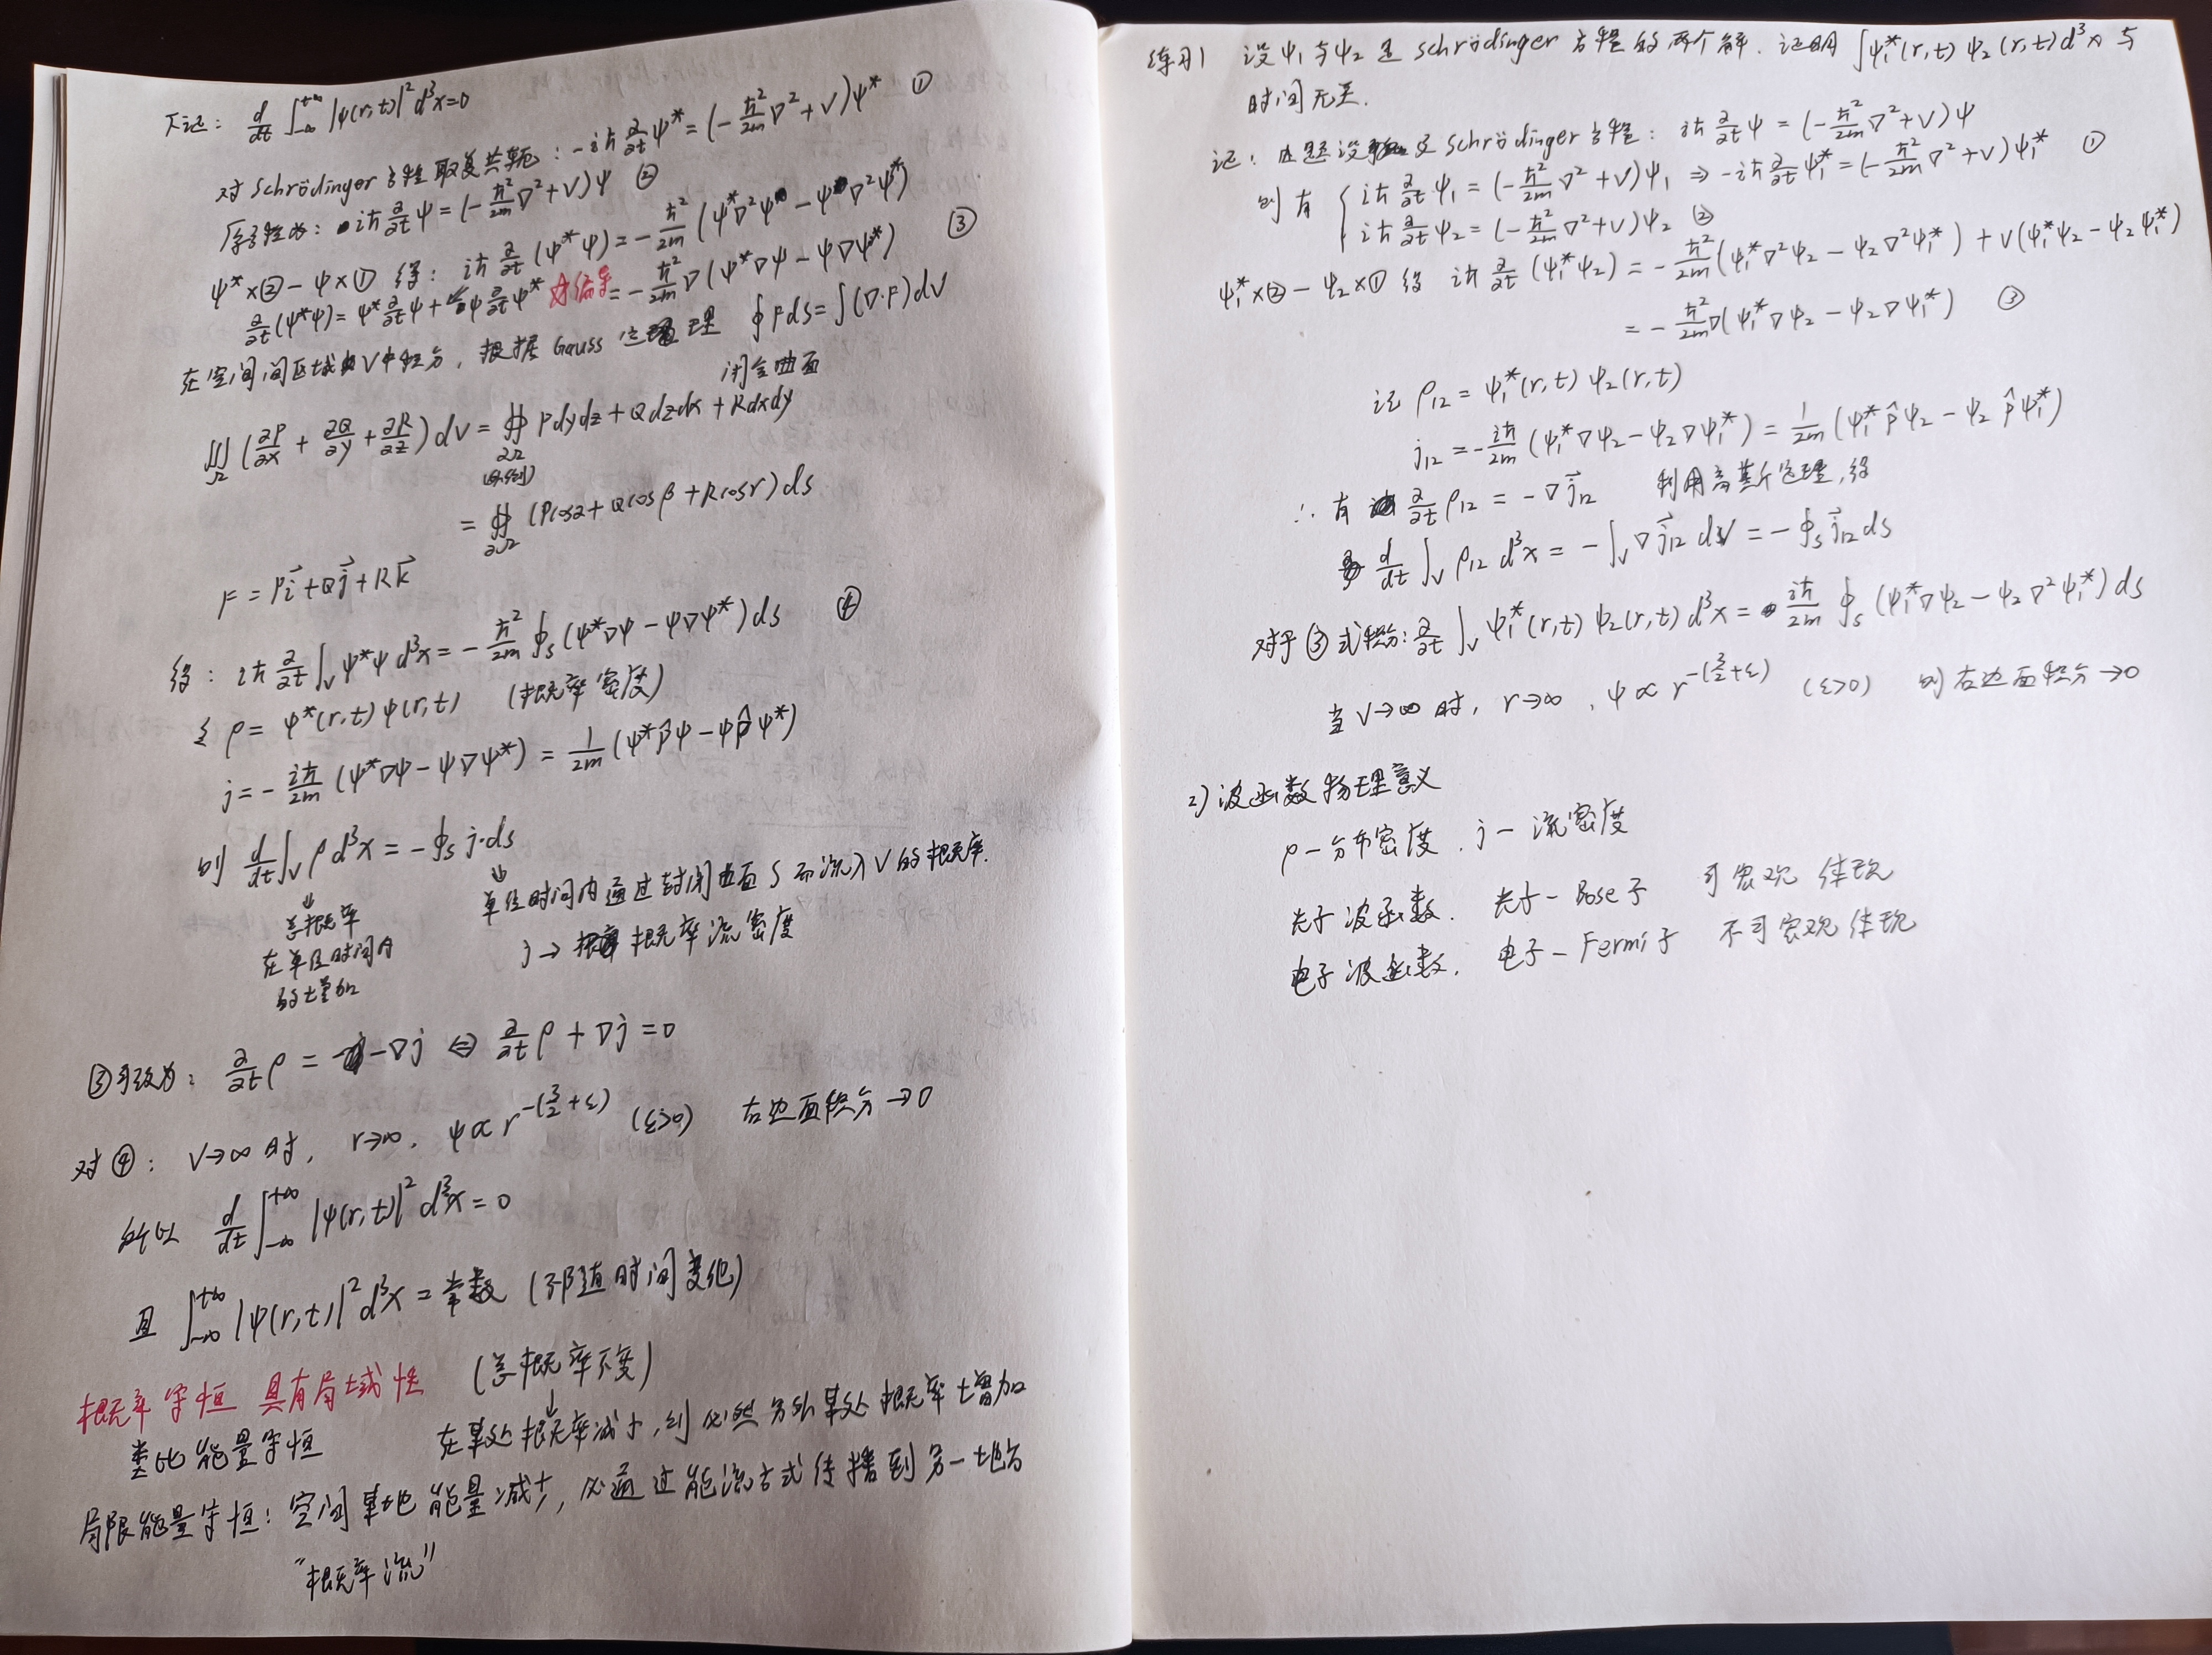 下证: d/dt ∫_{-∞}^{+∞} |ψ(r,t)|² d³x=0
对Schrödinger方程取复共轭: -iħ ∂/∂t ψ* = (-ħ²/2m ∇²+V)ψ* ①
原方程为: iħ ∂/∂t ψ = (-ħ²/2m ∇²+V)ψ ②
ψ*×②-ψ×① 得: iħ ∂/∂t (ψ*ψ) = -ħ²/2m (ψ*∇²ψ - ψ∇²ψ*)
∂/∂t(ψ*ψ) = ψ* ∂/∂t ψ + ψ ∂/∂t ψ* 求偏导 = -ħ²/2m ∇(ψ*∇ψ - ψ∇ψ*) ③
在空间间区域V中积分, 根据Gauss定理 ∮Fds=∫(∇·F)dV
闭合曲面
∭_Ω (∂P/∂x + ∂Q/∂y + ∂R/∂z) dV = ∯_{∂Ω} Pdydz+Qdzdx+Rdxdy
(外侧)
= ∯_{∂Ω} (Pcosα+Qcosβ+Rcosγ)ds
F = Pi⃗+Qj⃗+Rk⃗
得: iħ ∂/∂t ∫_V ψ*ψ d³x = -ħ²/2m ∮_S (ψ*∇ψ - ψ∇ψ*)ds ④
令 ρ = ψ*(r,t)ψ(r,t) (概率密度)
j = -iħ/2m (ψ*∇ψ - ψ∇ψ*) = 1/2m (ψ*p̂ψ - ψp̂ψ*)
则 d/dt ∫_V ρ d³x = -∮_S j·ds
↓ 总概率在单位时间内的增加
↓ 单位时间内通过封闭曲面S而流入V的概率.
j → 概率流密度
③可改为: ∂/∂t ρ = -∇j ⇔ ∂/∂t ρ + ∇j = 0
对④: V→∞时, r→∞, ψ∝r^{-(3/2+ε)} (ε>0) 右边面积分→0
所以 d/dt ∫_{-∞}^{+∞} |ψ(r,t)|² d³x = 0
且 ∫_{-∞}^{+∞} |ψ(r,t)|² d³x = 常数 (不随时间变化)
概率守恒 具有局域性 (总概率不变)
类比能量守恒 ↓ 在某处概率减少, 则必然另外某处概率增加
局限能量守恒: 空间某地能量减少, 必通过能流方式传播到另一地方
"概率流"
练习1 设ψ₁与ψ₂是Schrödinger方程的两个解. 证明∫ψ₁*(r,t)ψ₂(r,t)d³x 与
时间无关.
证: 由题设 Schrödinger方程: iħ ∂/∂t ψ = (-ħ²/2m ∇²+V)ψ
则有 { iħ ∂/∂t ψ₁ = (-ħ²/2m ∇²+V)ψ₁ ⇒ -iħ ∂/∂t ψ₁* = (-ħ²/2m ∇²+V)ψ₁* ①
iħ ∂/∂t ψ₂ = (-ħ²/2m ∇²+V)ψ₂ ②
ψ₁*×②-ψ₂×① 得 iħ ∂/∂t (ψ₁*ψ₂) = -ħ²/2m (ψ₁*∇²ψ₂ - ψ₂∇²ψ₁*) + V(ψ₁*ψ₂ - ψ₂ψ₁*)
= -ħ²/2m ∇(ψ₁*∇ψ₂ - ψ₂∇ψ₁*) ③
记 ρ₁₂ = ψ₁*(r,t)ψ₂(r,t)
j₁₂ = -iħ/2m (ψ₁*∇ψ₂ - ψ₂∇ψ₁*) = 1/2m (ψ₁*p̂ψ₂ - ψ₂p̂ψ₁*)
∴ 有 ∂/∂t ρ₁₂ = -∇j⃗₁₂ 利用高斯定理, 得
d/dt ∫_V ρ₁₂ d³x = -∫_V ∇j⃗₁₂ dV = -∮_S j⃗₁₂ ds
对于③式积分: ∂/∂t ∫_V ψ₁*(r,t)ψ₂(r,t)d³x = iħ/2m ∮_S (ψ₁*∇ψ₂ - ψ₂∇²ψ₁*)ds
当V→∞时, r→∞, ψ∝r^{-(3/2+ε)} (ε>0) 则右边面积分→0
2) 波函数物理意义
ρ-分布密度. j-流密度
光子波函数. 光子-Bose子 可宏观体现
电子波函数. 电子-Fermi子 不可宏观体现